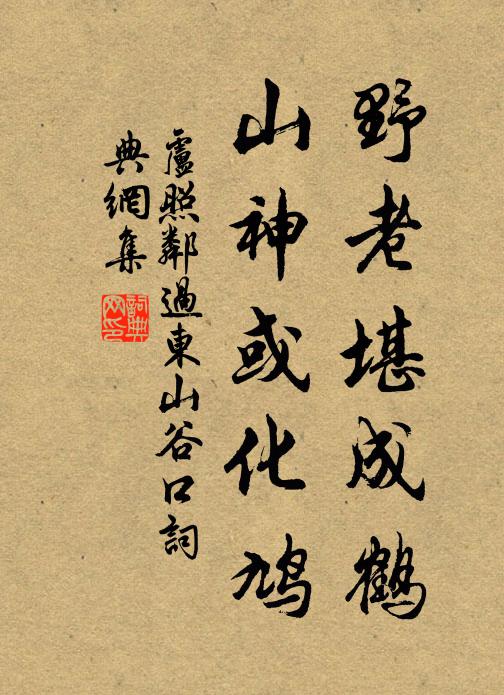 野老堪成鶴
山神或化鳩
盧照鄰過東山谷口詞
典網集
詞典网印